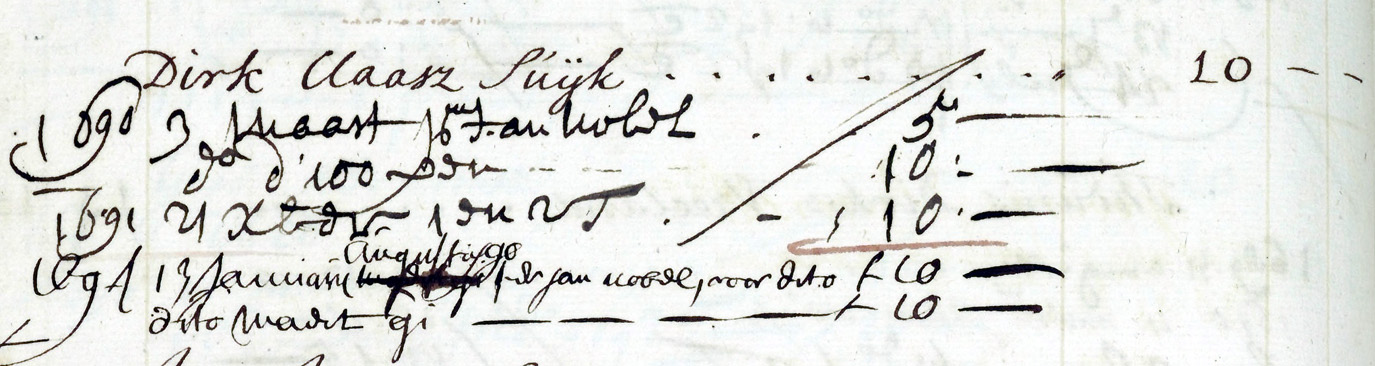 Dirk Claasz Suijk . . . . . . . . 10 - -
1690 3 Maart p Jan Nobel . 5 —
do d'100 pen - - - 10 : —
1691 21 Xber 1 en 2 . - , 10 . —
169 13 Januari Augusti 90 Jan nobel, voor dito f 10 —
dito maert 91 — — — — f 10 —